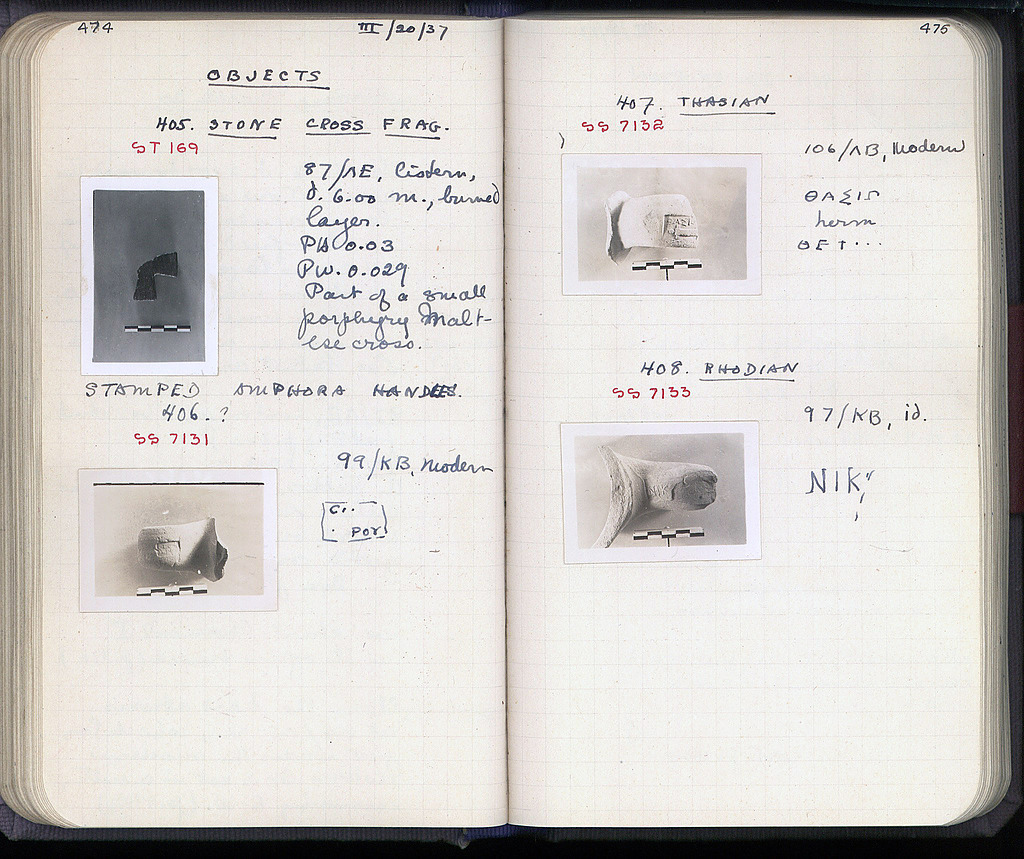 474
III/20/37
OBJECTS
405. STONE CROSS FRAG.
ST 169
87/ΛΕ, Cistern,
d. 6.00 m., burned
layer.
PH 0.03
PW. 0.029
Part of a small
porphyry Malt-
ese cross.
STAMPED AMPHORA HANDLES.
406. ?
SS 7131
99/ΚΒ, Modern
475
407. THASIAN
SS 7132
106/ΛΒ, Modern
ΘΑΣΙΩ
herm
ΘΕΤ...
408. RHODIAN
SS 7133
97/ΚΒ, id.
ΝΙΚ